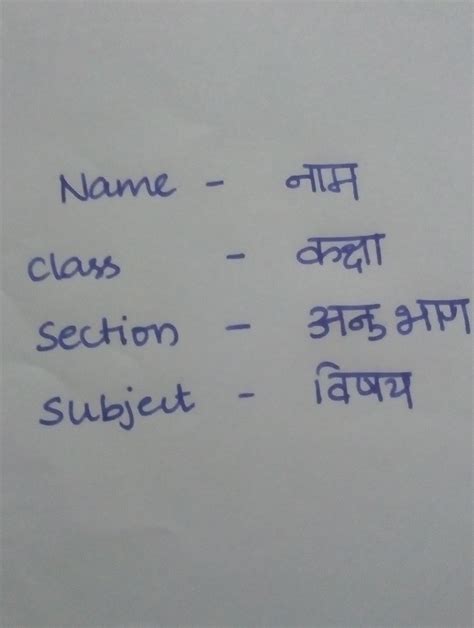 Name - नाम
class - कक्षा
section - अनुभाग
subject - विषय